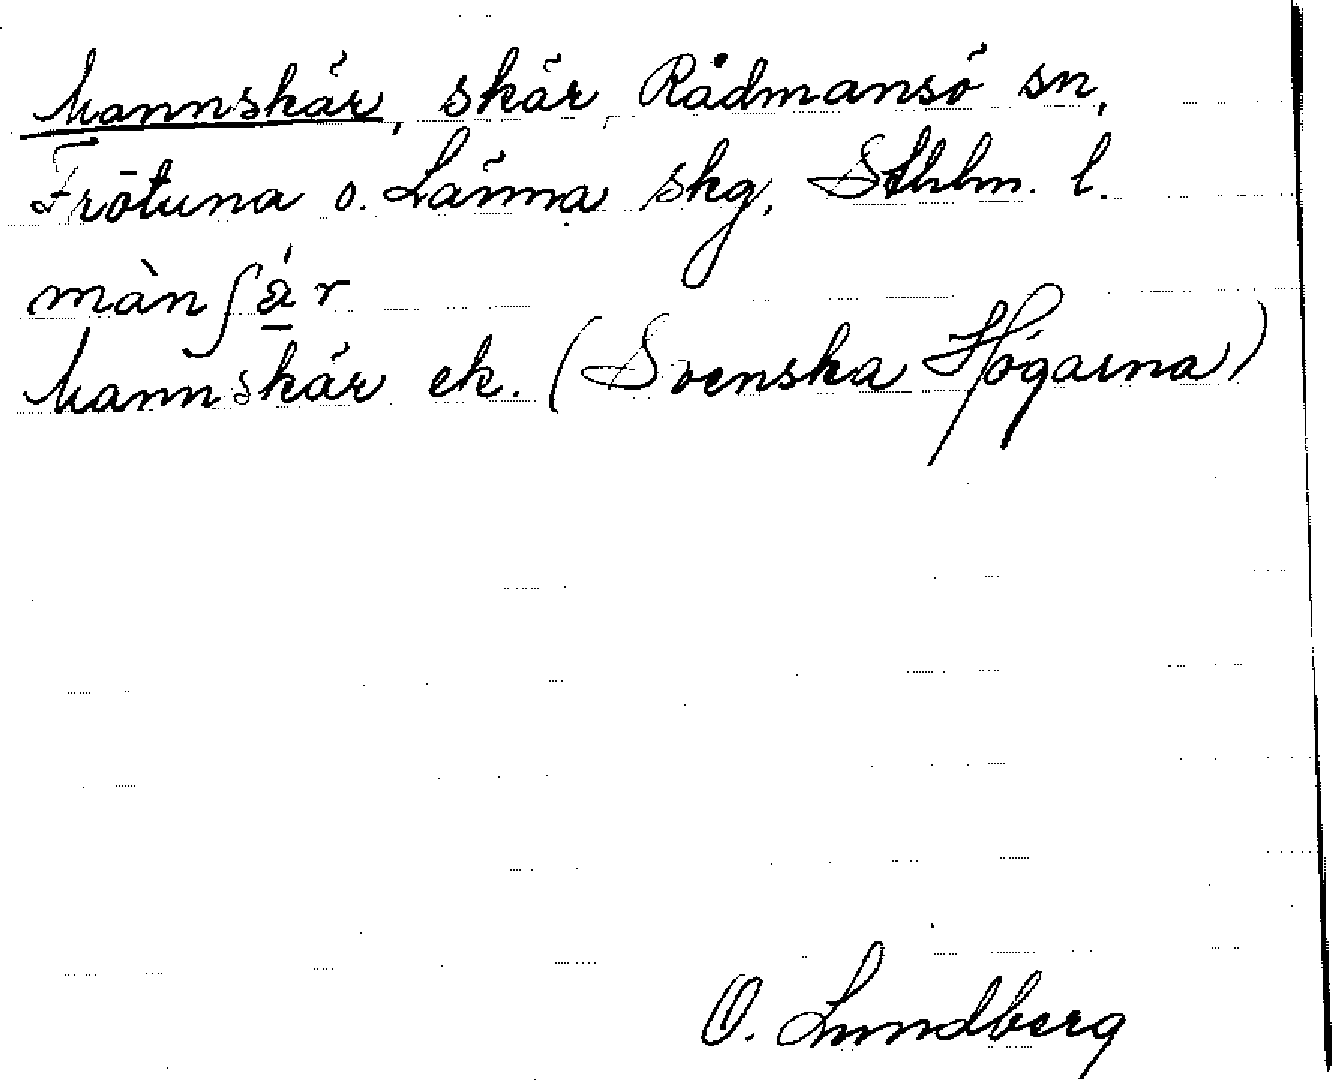 Mannskär, skär, Rådmansö sn,
Frötuna o. Länna skg, Sthlm. l.
mànʃä́r
Mannskär ek. (Svenska Högarna)
O. Lundberg